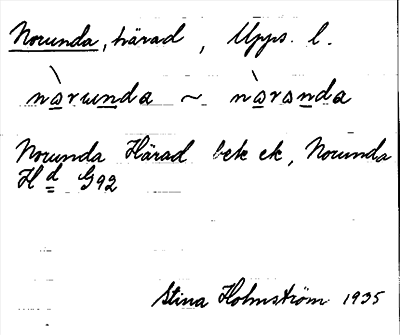 Norunda, härad, Upps. l.
nàrunda ~ nàranda
Norunda Härad bek ek, Norunda
Hd G92
Stina Holmström 1935